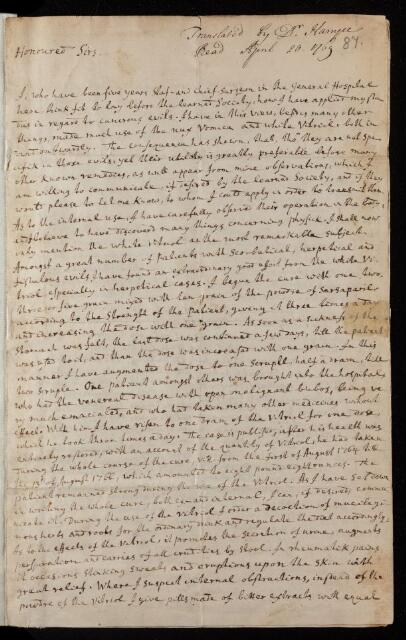 Translated by Dr.
Read April 20. 1769
87.
Honoured Sirs
I, who have been five years Staf- and chief surgeon in the General Hospital
here, think fit to lay before the learned Society, how I have applied my
dies in regard to cancrous evils. I have in this view, besides many other
things, made much use of the nux Vomica and white Vitriol, both in
and outwardly. The consequence has shewn, that, tho' they are not spe-
cifick in those evils, yet their utility is greatly preferable before many
other known remedies, as will appear from mine observations, which I
am willing to communicate, if desired by the learned Society, and if they
will please to let me know, to whom I could apply in order to
As to the internal use, I have carefully observed their operation in the body,
and believe to have discovered many things concerning physick. I shall now
only mention the white Vitriol as the most remarkable subject.
Amongst a great number of patients with Scorbutical, herpetical and
fistulous evils I have found an extraordinary good effect from the white Vi-
triol especially in herpetical cases. I begun the cure with one two
three or five grain mixed with ten grain of the powder of Sarsaparil
according to the Strength of the patient, giving it three times a day
and increasing the dose with one grain. As soon as a sickness of the
stomach was felt, the last dose was continued a few days, till the patient
was used to it, and than the dose was increased with one grain. In this
manner I have augmented the dose to one Scruple, half a dram, till
two Scruple. One patient amongst others was brought into the hospital,
who had the venereal disease with open malignant bubos, being ve-
ry much emaciated, and who had taken many other medicines without
effect. With him I have risen to one dram of the Vitriol for one dose,
which he took three times a day. The case is publish'd, after his health was
entirely restored, with an account of the quantity of Vitriol, he had taken
during the whole course of the cure, viz. from the first of August 1764 till
the of August 1765, which amounted to eight pound eight ounces. The
patient remained strong during the use of the Vitriol. As I have set down
in writing the whole cure, both in- and external, I can, if desired, commu-
nicate it. During the use of the Vitriol I order a decoction of mucilagi-
nous herbs and roots for the ordinary drink and regulate the diet accordingly.
As to the effects of the Vitriol, it promotes the secretion of urine, augments
perspiration and carries of all crudities by Stool. In rheumatick pains
it occasions stinking sweats and eruptions upon the skin with
great relief. Where I suspect internal obstructions, instead of the
powder of the Vitriol I give pills made of bitter extracts with equal